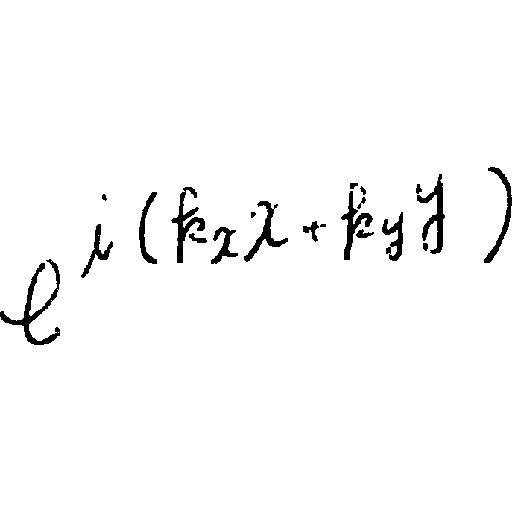 e^{i(k_x x + k_y y)}